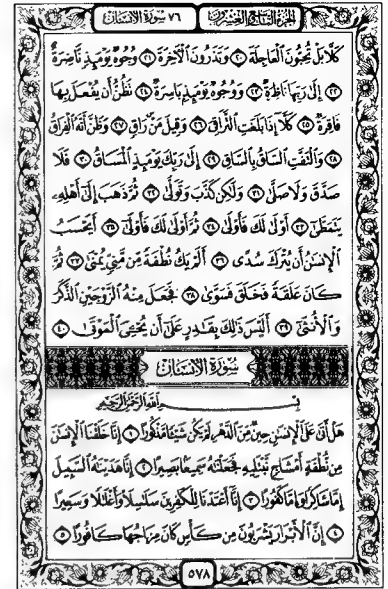 الجزء التاسع والعشرون
٧٦ سورة الإنسان
كَلَّا بَلْ تُحِبُّونَ الْعَاجِلَةَ ٢٠ وَتَذَرُونَ الْآخِرَةَ ٢١ وُجُوهٌ يَوْمَئِذٍ نَّاضِرَةٌ
٢٢ إِلَىٰ رَبِّهَا نَاظِرَةٌ ٢٣ وَوُجُوهٌ يَوْمَئِذٍ بَاسِرَةٌ ٢٤ تَظُنُّ أَن يُفْعَلَ بِهَا
فَاقِرَةٌ ٢٥ كَلَّا إِذَا بَلَغَتِ التَّرَاقِيَ ٢٦ وَقِيلَ مَنْ رَاقٍ ٢٧ وَظَنَّ أَنَّهُ الْفِرَاقُ
٢٨ وَالْتَفَّتِ السَّاقُ بِالسَّاقِ ٢٩ إِلَىٰ رَبِّكَ يَوْمَئِذٍ الْمَسَاقُ ٣٠ فَلَا
صَدَّقَ وَلَا صَلَّىٰ ٣١ وَلَٰكِن كَذَّبَ وَتَوَلَّىٰ ٣٢ ثُمَّ ذَهَبَ إِلَىٰ أَهْلِهِ
يَتَمَطَّىٰ ٣٣ أَوْلَىٰ لَكَ فَأَوْلَىٰ ٣٤ ثُمَّ أَوْلَىٰ لَكَ فَأَوْلَىٰ ٣٥ أَيَحْسَبُ
الْإِنسَانُ أَن يُتْرَكَ سُدًى ٣٦ أَلَمْ يَكُ نُطْفَةً مِّن مَّنِيٍّ يُمْنَىٰ ٣٧ ثُمَّ
كَانَ عَلَقَةً فَخَلَقَ فَسَوَّىٰ ٣٨ فَجَعَلَ مِنْهُ الزَّوْجَيْنِ الذَّكَرَ
وَالْأُنثَىٰ ٣٩ أَلَيْسَ ذَٰلِكَ بِقَادِرٍ عَلَىٰ أَن يُحْيِيَ الْمَوْتَىٰ ٤٠
سورة الإنسان
بِسْمِ اللَّهِ الرَّحْمَٰنِ الرَّحِيمِ
هَلْ أَتَىٰ عَلَى الْإِنسَانِ حِينٌ مِّنَ الدَّهْرِ لَمْ يَكُن شَيْئًا مَّذْكُورًا ١ إِنَّا خَلَقْنَا الْإِنسَانَ
مِن نُّطْفَةٍ أَمْشَاجٍ نَّبْتَلِيهِ فَجَعَلْنَاهُ سَمِيعًا بَصِيرًا ٢ إِنَّا هَدَيْنَاهُ السَّبِيلَ
إِمَّا شَاكِرًا وَإِمَّا كَفُورًا ٣ إِنَّا أَعْتَدْنَا لِلْكَافِرِينَ سَلَاسِلَا وَأَغْلَالًا وَسَعِيرًا
٤ إِنَّ الْأَبْرَارَ يَشْرَبُونَ مِن كَأْسٍ كَانَ مِزَاجُهَا كَافُورًا ٥
٥٧٨